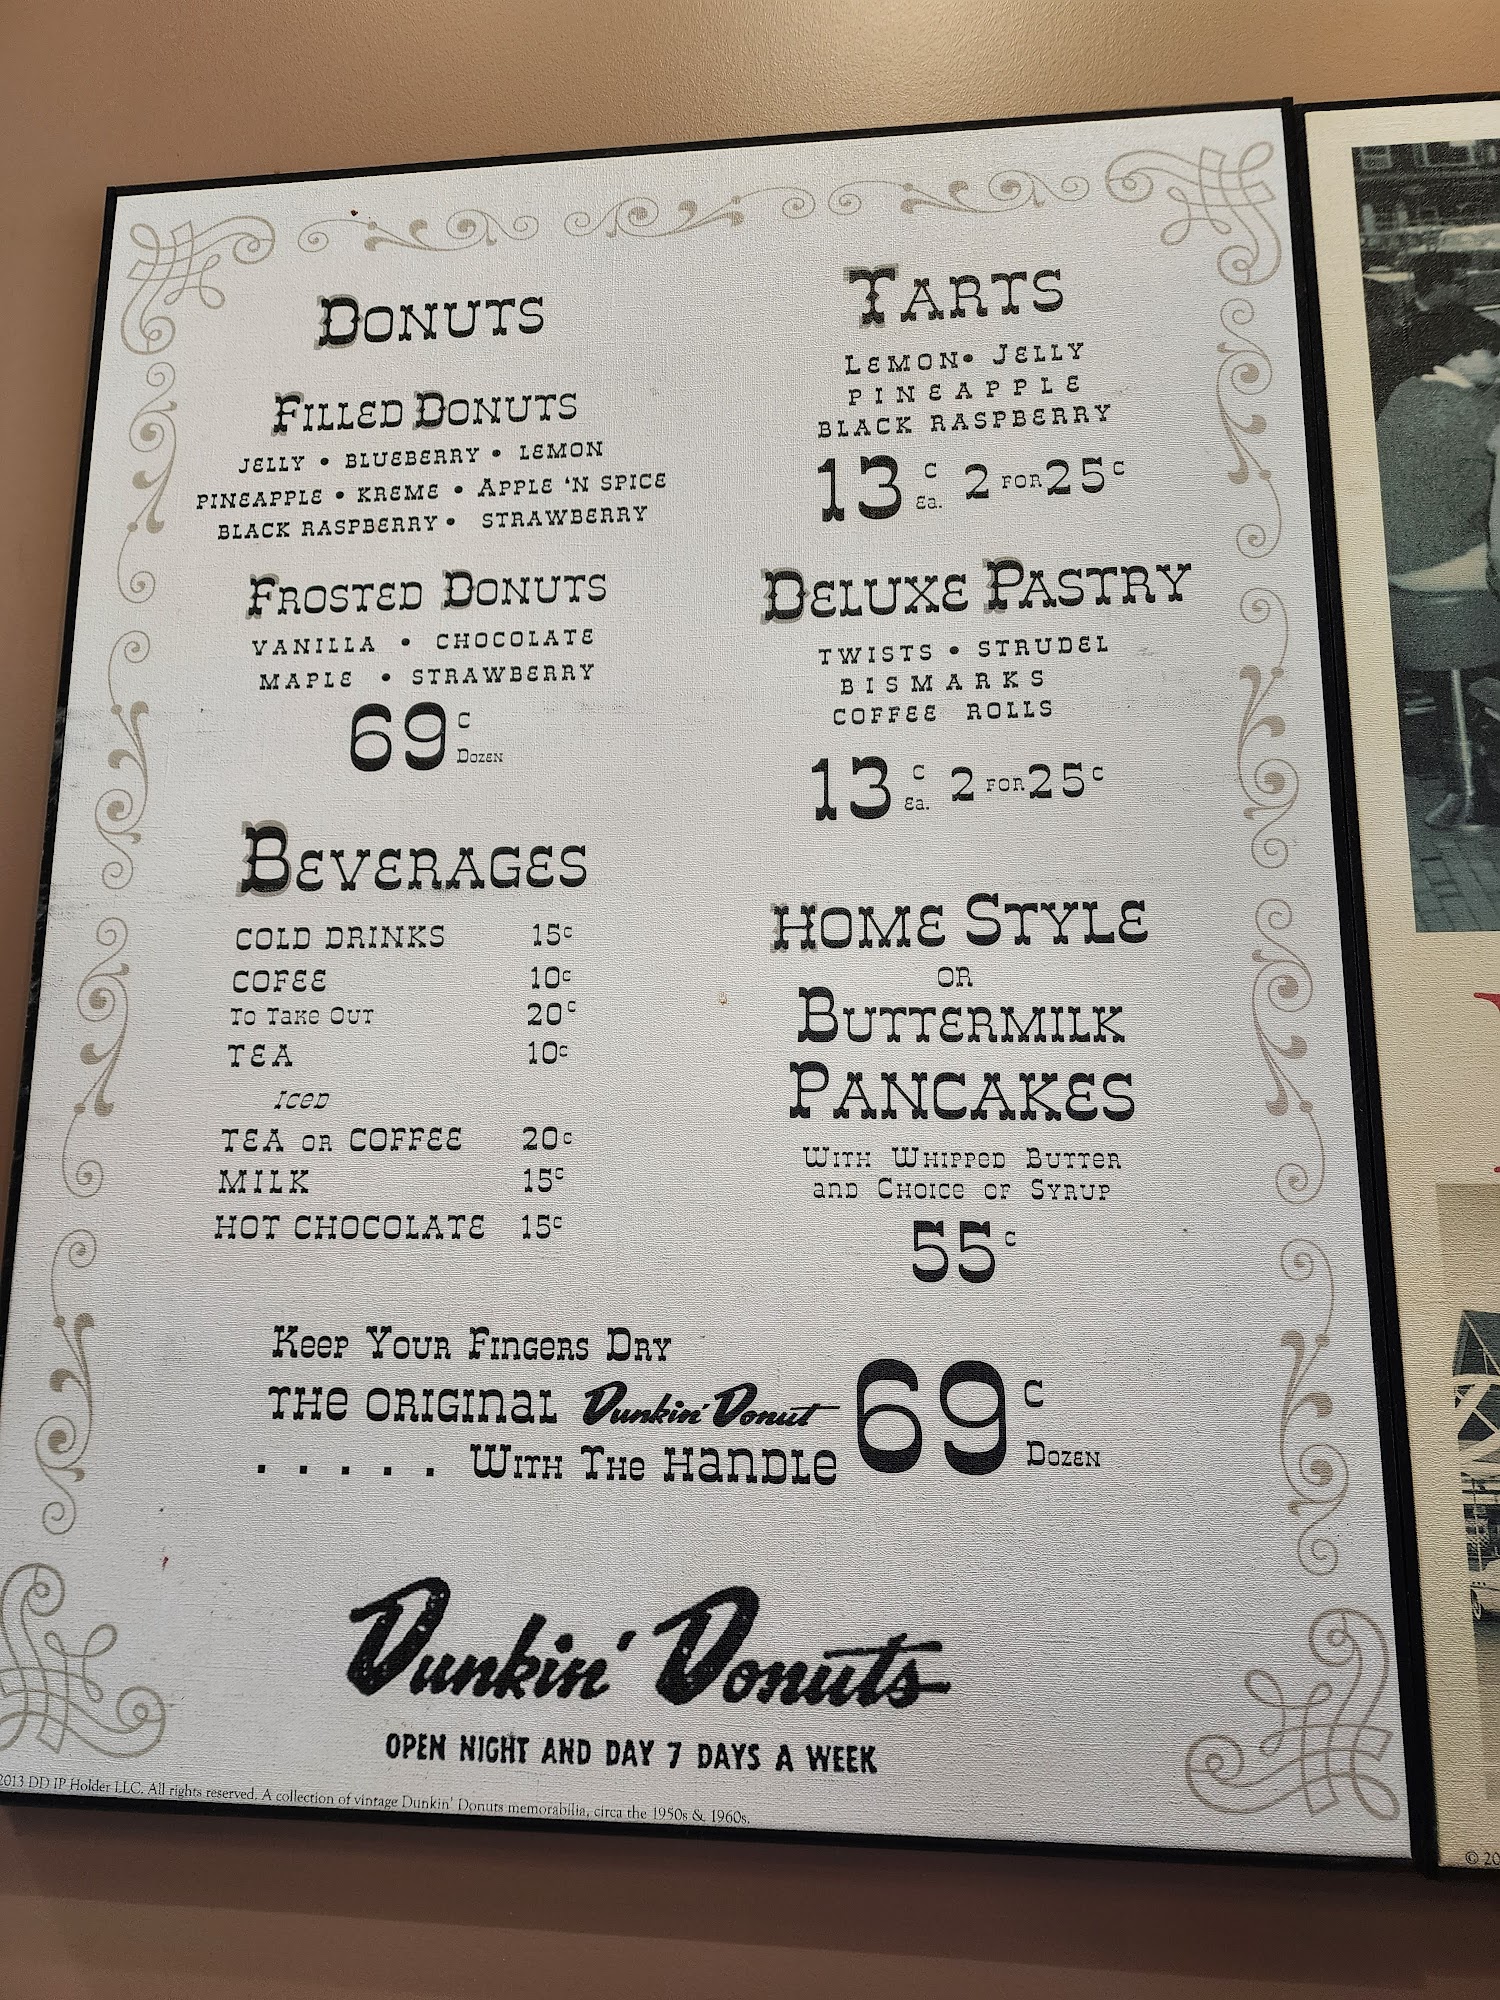 DONUTS
FILLED DONUTS
JELLY • BLUEBERRY • LEMON
PINEAPPLE • KREME • APPLE 'N SPICE
BLACK RASPBERRY • STRAWBERRY
FROSTED DONUTS
VANILLA • CHOCOLATE
MAPLE • STRAWBERRY
69c DOZEN
BEVERAGES
COLD DRINKS 15c
COFEE 10c
TO TAKE OUT 20c
TEA 10c
ICED
TEA OR COFFEE 20c
MILK 15c
HOT CHOCOLATE 15c
TARTS
LEMON • JELLY
PINEAPPLE
BLACK RASPBERRY
13c Ea. 2 FOR 25c
DELUXE PASTRY
TWISTS • STRUDEL
BISMARKS
COFFEE ROLLS
13c Ea. 2 FOR 25c
HOME STYLE
OR
BUTTERMILK
PANCAKES
WITH WHIPPED BUTTER
AND CHOICE OF SYRUP
55c
KEEP YOUR FINGERS DRY
THE ORIGINAL Dunkin' Donut
..... WITH THE HANDLE
69c DOZEN
Dunkin' Donuts
OPEN NIGHT AND DAY 7 DAYS A WEEK
2013 DD IP Holder LLC. All rights reserved. A collection of vintage Dunkin' Donuts memorabilia, circa the 1950s & 1960s.